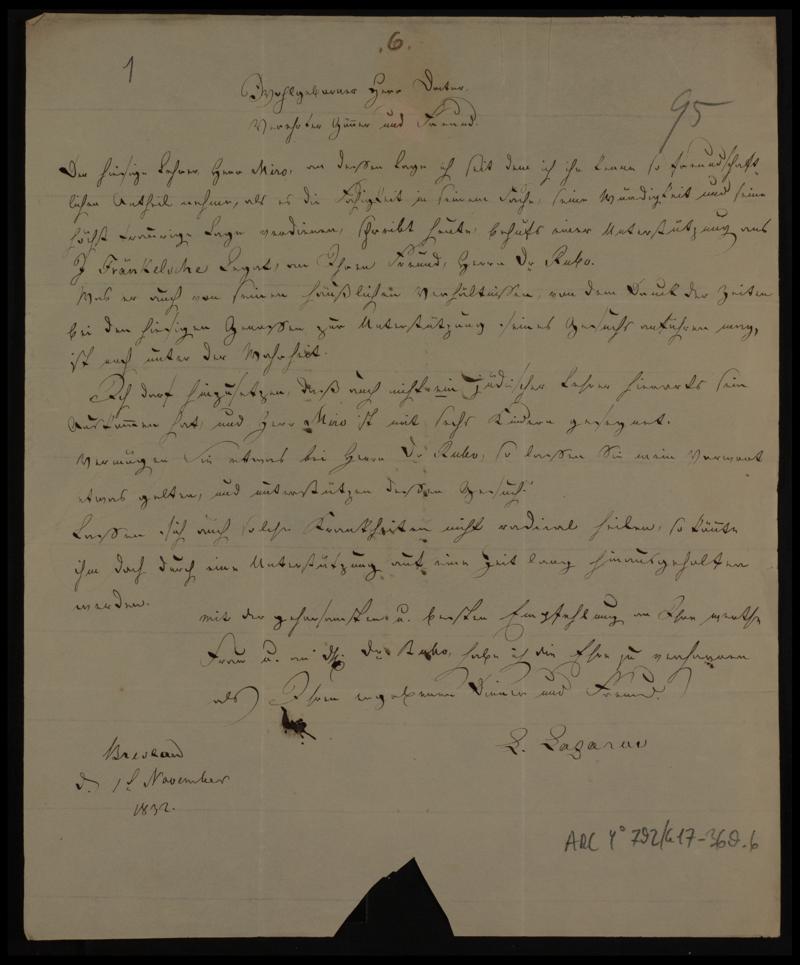 .6.
1
Wohlgeborner Herr Doctor.
95
Verehrter Gönner und Freund.
Der hiesige Lehrer, Herr Miro, an dessen Lage ich seit dem ich ihn kenne so freundschaft-
lichen Antheil nehme, als es die Fähigkeit in seinem Fache, seine Würdigkeit und seine
höchst traurige Lage verdienen, schreibt heute, behufs einer Unterstützung aus
J Fränkelsche Legat, an Ihren Freund, Herrn Dr Rubo.
Was er auch von seinen häußlichen Verhältnissen, von dem Druck der Zeiten
bei den hiesigen Genossen zur Unterstützung seines Gesuchs anführen mag,
ist noch unter der Wahrheit.
Ich darf hinzusetzen, daß auch nicht ein jüdischer Lehrer hierorts sein
Auskommen hat, und Herr Miro ist mit sechs Kindern gesegnet.
Vermögen Sie etwas bei Herrn Dr Rubo, so lassen Sie mein Vorwort
etwas gelten, und unterstützen dessen Gesuch.
Lassen sich auch solche Krankheiten nicht radical heilen, so könnte
ihm doch durch eine Unterstützung auf eine Zeit lang hinausgeholfen
werden.
Mit der gehorsamsten u. besten Empfehlung an Ihre werthe
Frau u. an Dr Rubo, habe ich die Ehre zu verharren
als Ihren ergebenen Diener und Freund.
L. Lazarus
Breslau
d. 1 November
1832.
ARC 4° 792/G17-368.6